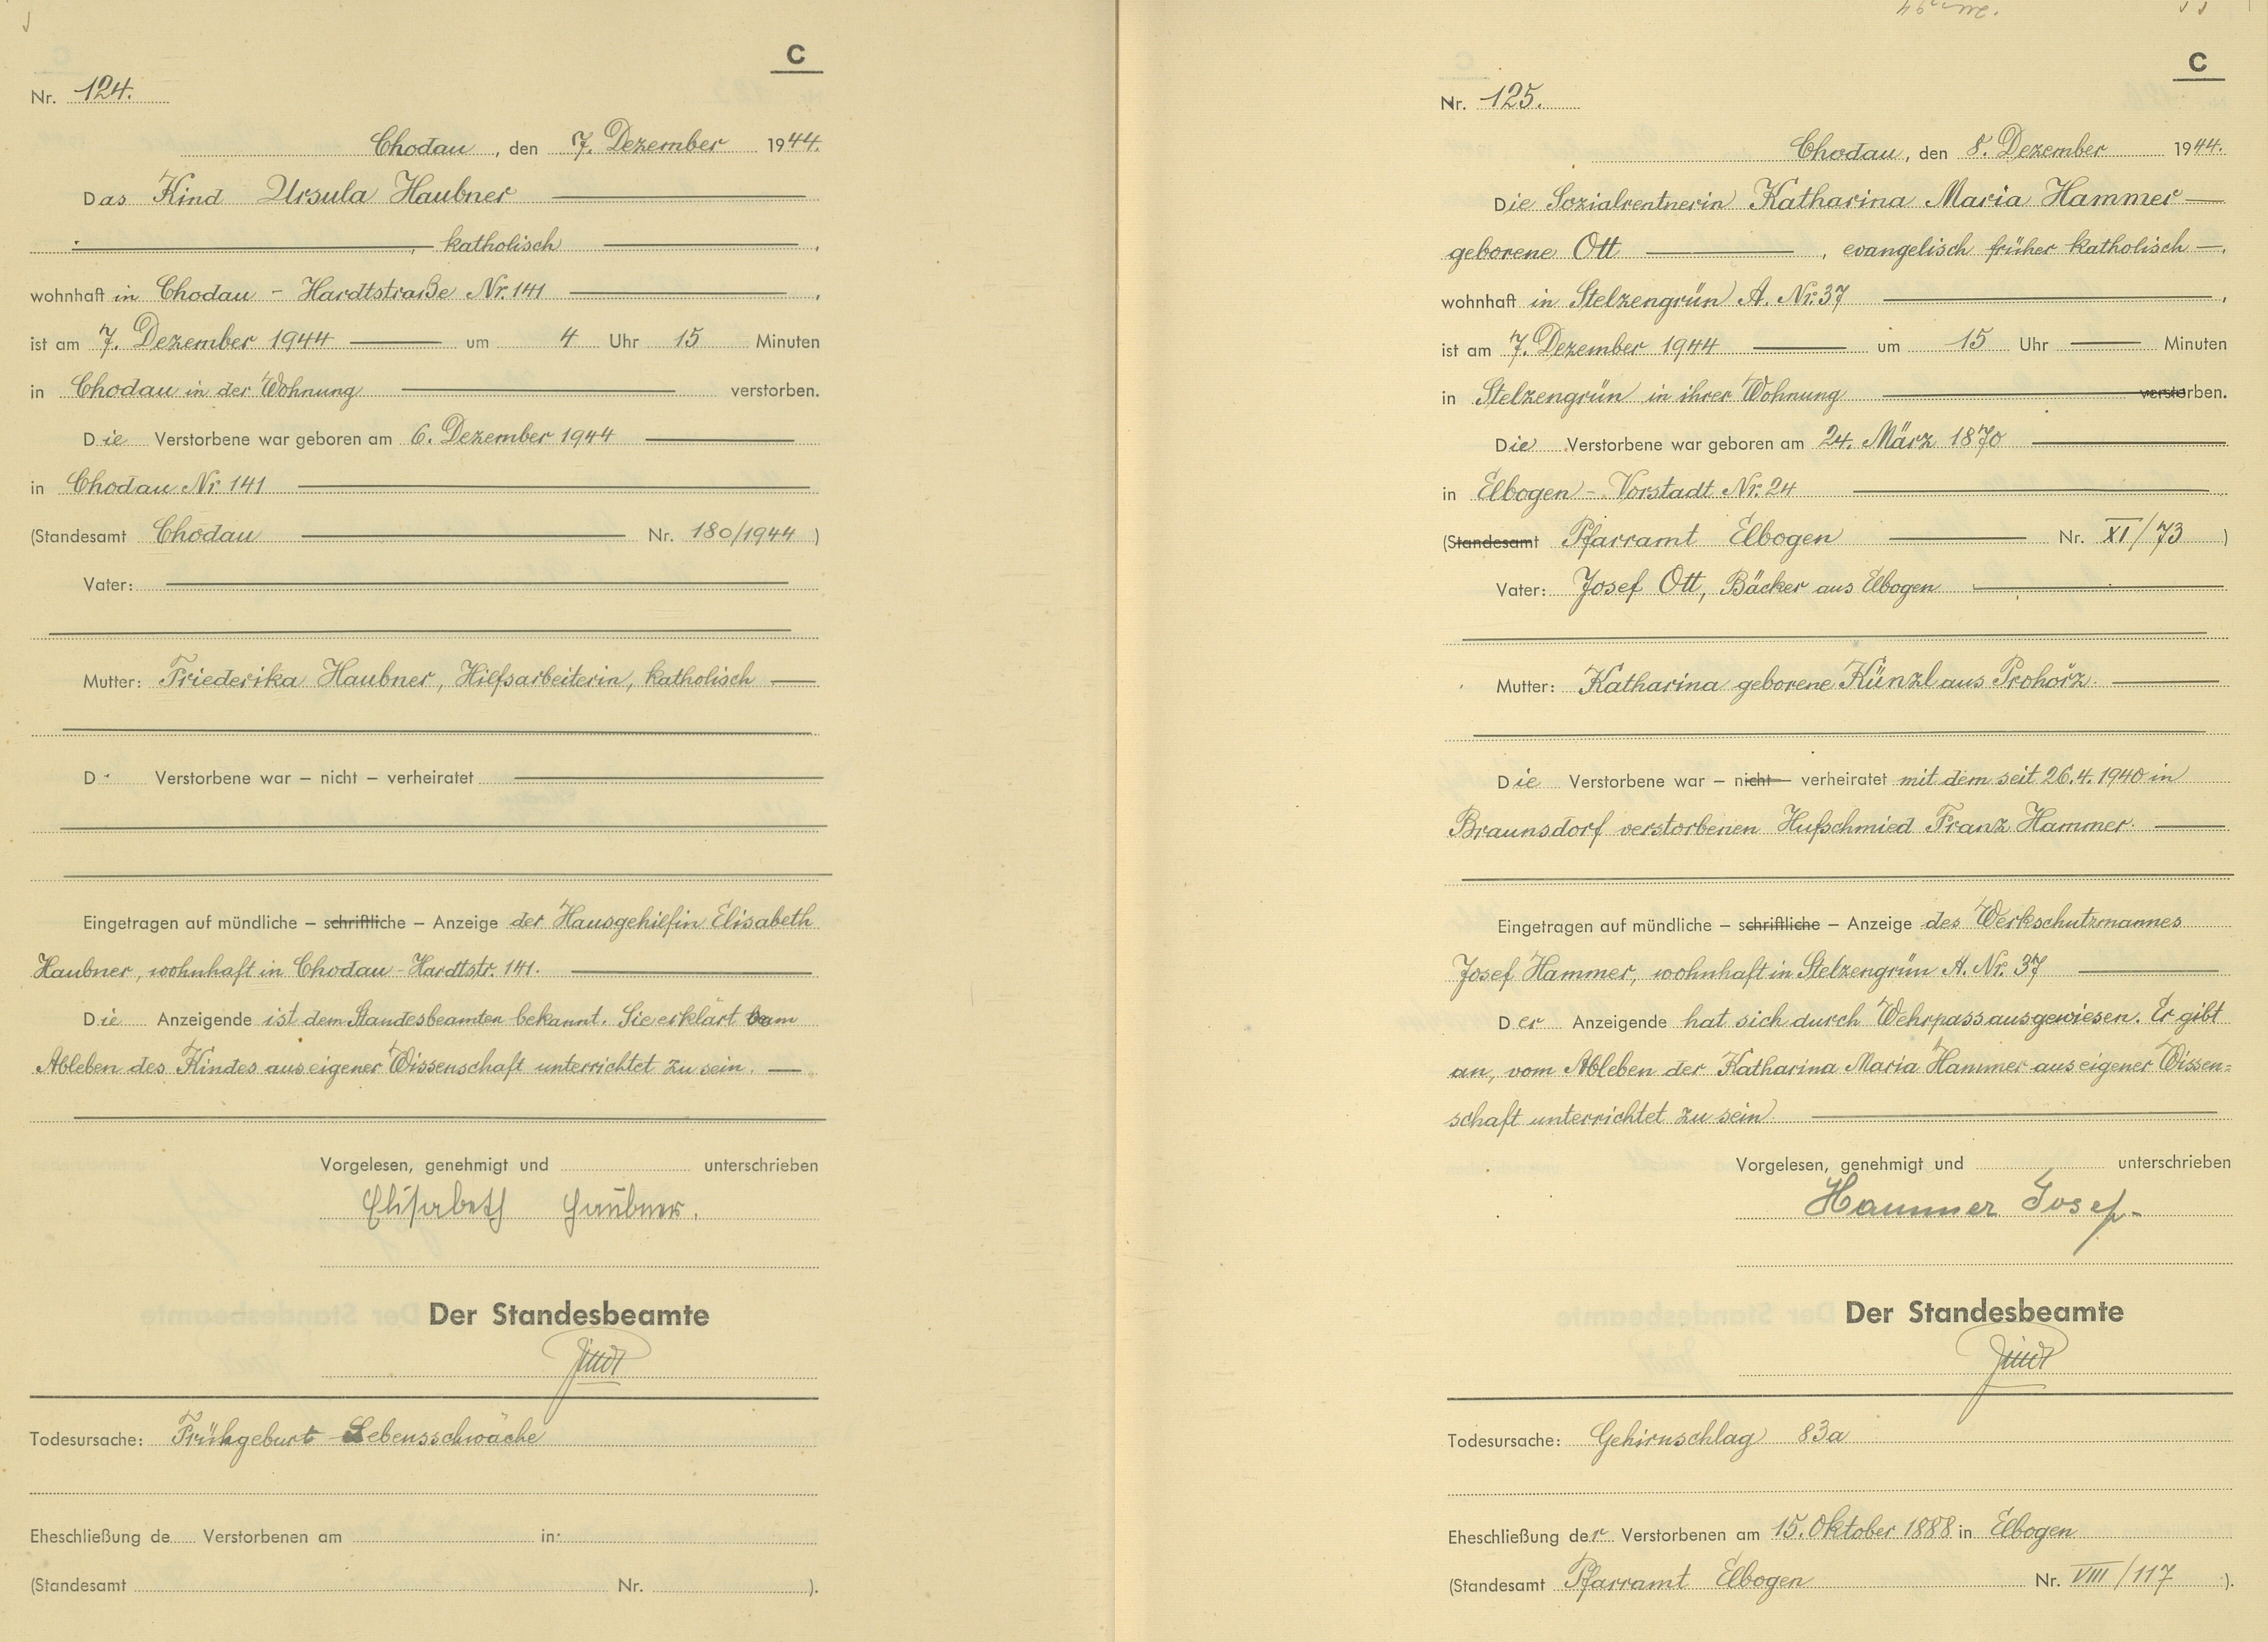 C
Nr. 124.
Chodau, den 7. Dezember 1944.
Das Kind Ursula Haubner
katholisch,
wohnhaft in Chodau - Hardtstraße Nr. 141,
ist am 7. Dezember 1944 um 4 Uhr 15 Minuten
in Chodau in der Wohnung verstorben.
Die Verstorbene war geboren am 6. Dezember 1944
in Chodau Nr. 141
(Standesamt Chodau Nr. 180/1944)
Vater:
Mutter: Friederika Haubner, Hilfsarbeiterin, katholisch
D Verstorbene war – nicht – verheiratet
Eingetragen auf mündliche – schriftliche – Anzeige der Hausgehilfin Elisabeth
Haubner, wohnhaft in Chodau - Hardtstr. 141.
Die Anzeigende ist dem Standesbeamten bekannt. Sie erklärt vom
Ableben des Kindes aus eigener Wissenschaft unterrichtet zu sein.
Vorgelesen, genehmigt und unterschrieben
Elisabeth Haubner.
Der Standesbeamte
Todesursache: Frühgeburt Lebensschwäche
Eheschließung de Verstorbenen am in
(Standesamt Nr. ).
C
Nr. 125.
Chodau, den 8. Dezember 1944.
Die Sozialrentnerin Katharina Maria Hammer
geborene Ott, evangelisch früher katholisch,
wohnhaft in Stelzengrün A. Nr. 37,
ist am 7. Dezember 1944 um 15 Uhr Minuten
in Stelzengrün in ihrer Wohnung verstorben.
Die Verstorbene war geboren am 24. März 1870
in Elbogen - Vorstadt Nr. 24
(Standesamt Pfarramt Elbogen Nr. XI/73)
Vater: Josef Ott, Bäcker aus Elbogen
Mutter: Katharina geborene Künzl aus Prohořz
Die Verstorbene war – nicht – verheiratet mit dem seit 26.4.1940 in
Braunsdorf verstorbenen Hufschmied Franz Hammer.
Eingetragen auf mündliche – schriftliche – Anzeige des Werkschutzmannes
Josef Hammer, wohnhaft in Stelzengrün A. Nr. 37
Der Anzeigende hat sich durch Wehrpass ausgewiesen. Er gibt
an, vom Ableben der Katharina Maria Hammer aus eigener Wissen=
schaft unterrichtet zu sein
Vorgelesen, genehmigt und unterschrieben
Hammer Josef.
Der Standesbeamte
Todesursache: Gehirnschlag 83a
Eheschließung der Verstorbenen am 15. Oktober 1888 in Elbogen
(Standesamt Pfarramt Elbogen Nr. VIII/117).